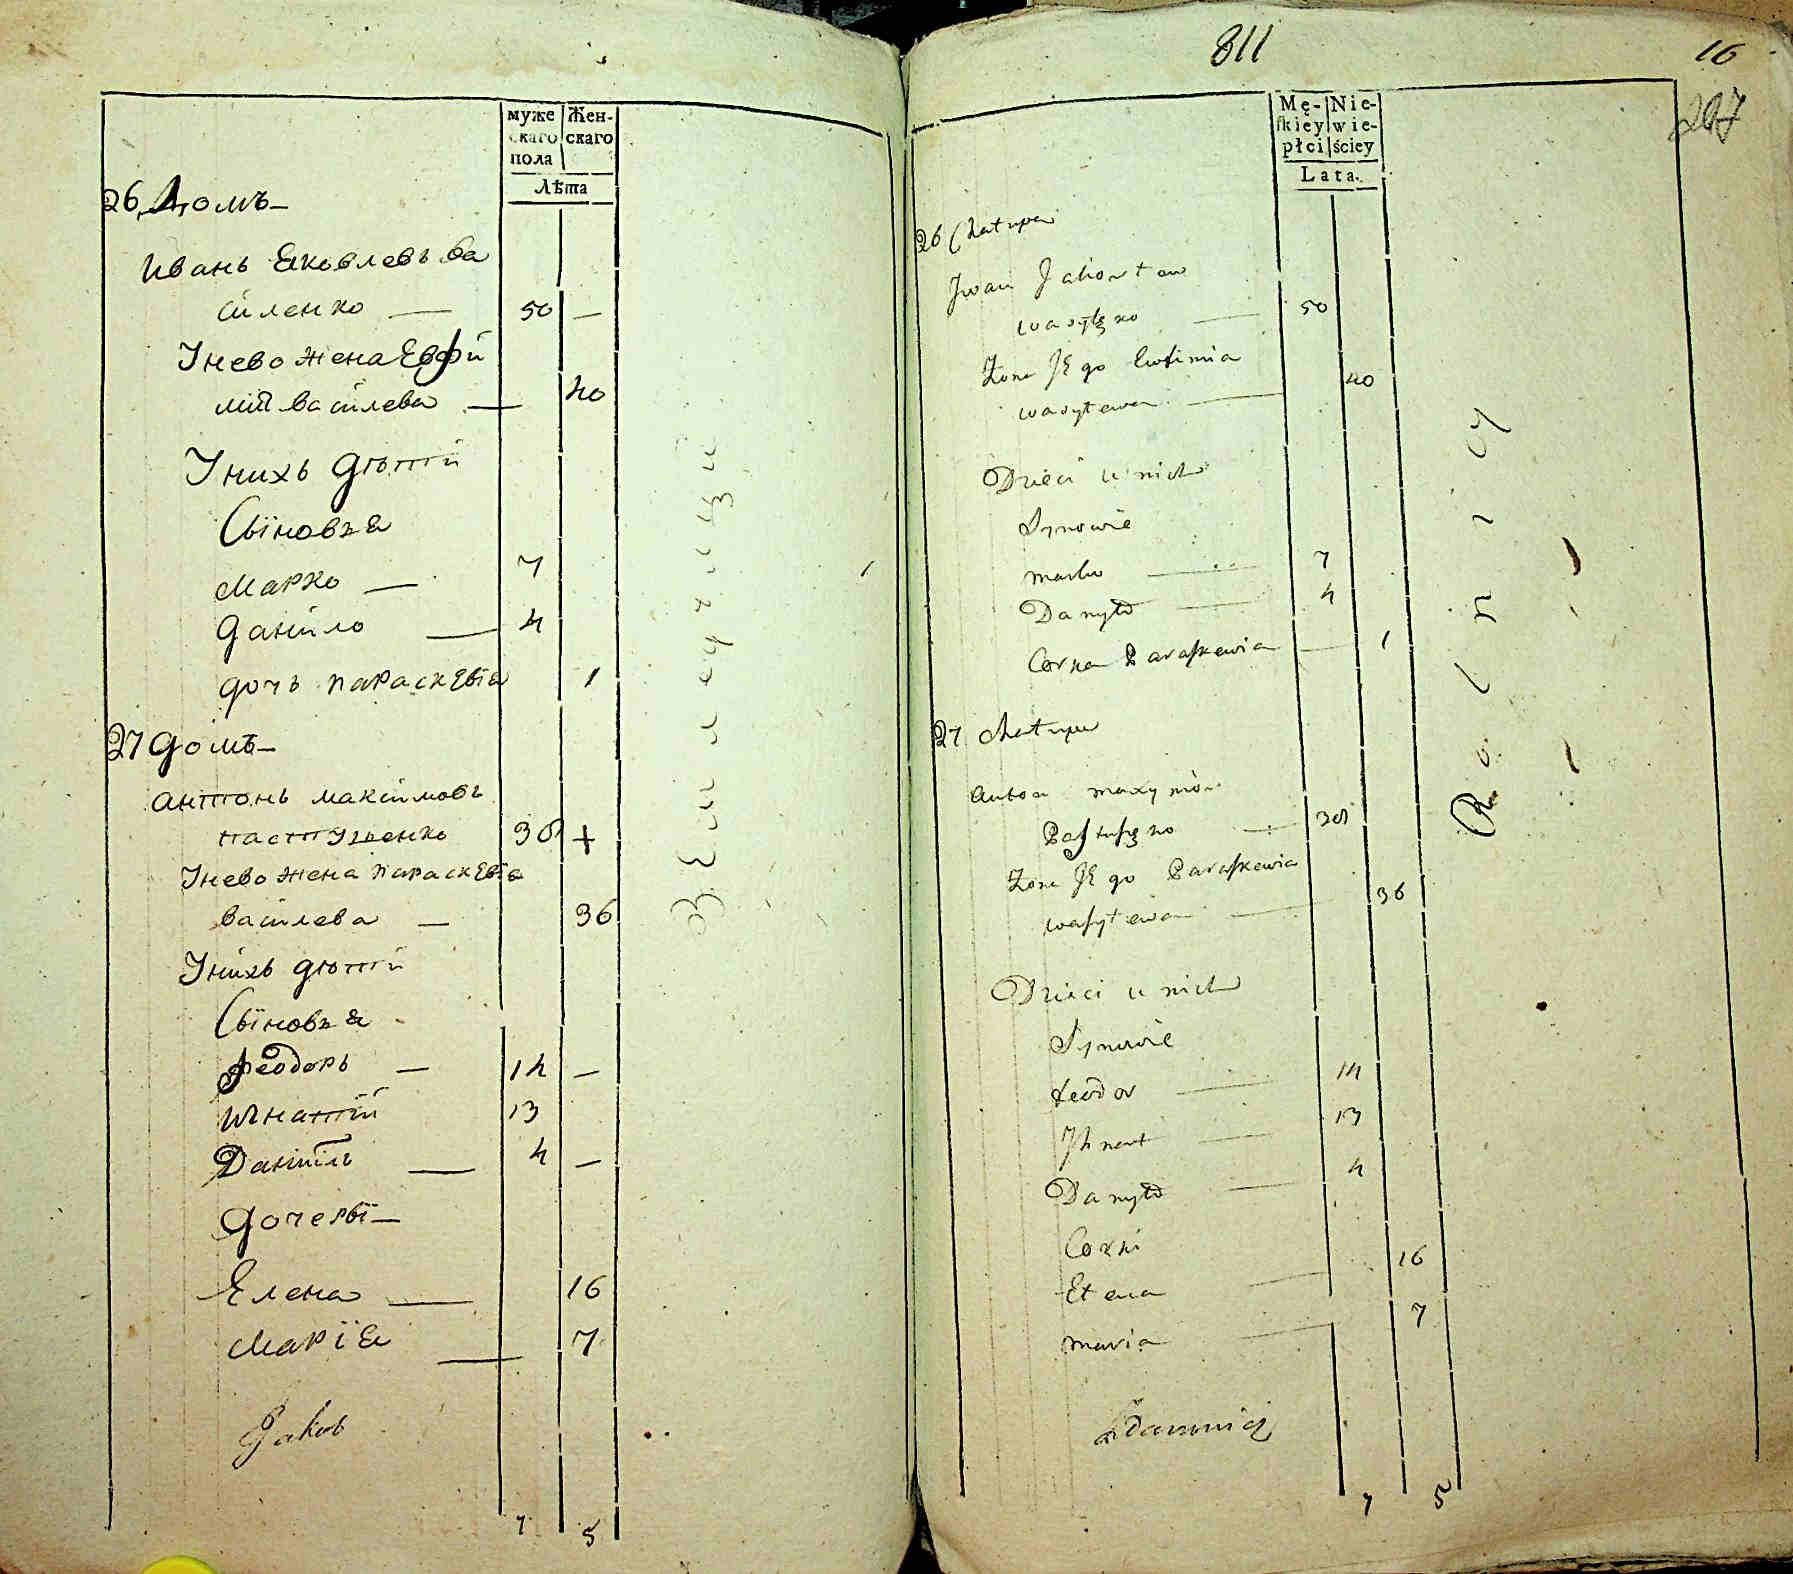 муже
скаго
пола
Жен-
скаго
Лѣта
26 Домъ
Иванъ Яковлевъ Ва
силенко — 50 —
Унево жена Евфи
мия Василева — 40
Унихъ Дѣти
Сыновья
Марко — 7
Данило — 4
дочь Параскевія 1
27 Домъ
Антонъ Максимовъ
Пастушенко 38
Унево жена Параскевія
Василева — 36
Унихъ дѣти
Сыновья
Феодоръ — 14 —
Игнатій 13
Даніилъ — 4 —
Дочеры
Елена — 16
Марія — 7
Jakob
7 5
811
16
207
Mę-
skiey
płci
Nie-
wie-
ściey
Lata.
26 Chałupa
Jwan Jakowłow
Wasyłęko — 50
Żona JEgo Ewfimia
Wasyłewa — 40
Dzieci u nich
Synowie
Marko — 7
Danyło — 4
Corka Paraskewia — 1
27 Chałupa
Anton Maxymów
Pastuszęko — 38
Żona JEgo Paraskewia
Wasyłewa — 36
Dzieci u nich
Synowie
Feodor — 14
Jhnat — 13
Danyło — 4
Corki
Ełena — 16
Maria — 7
7 5
Rolnicy